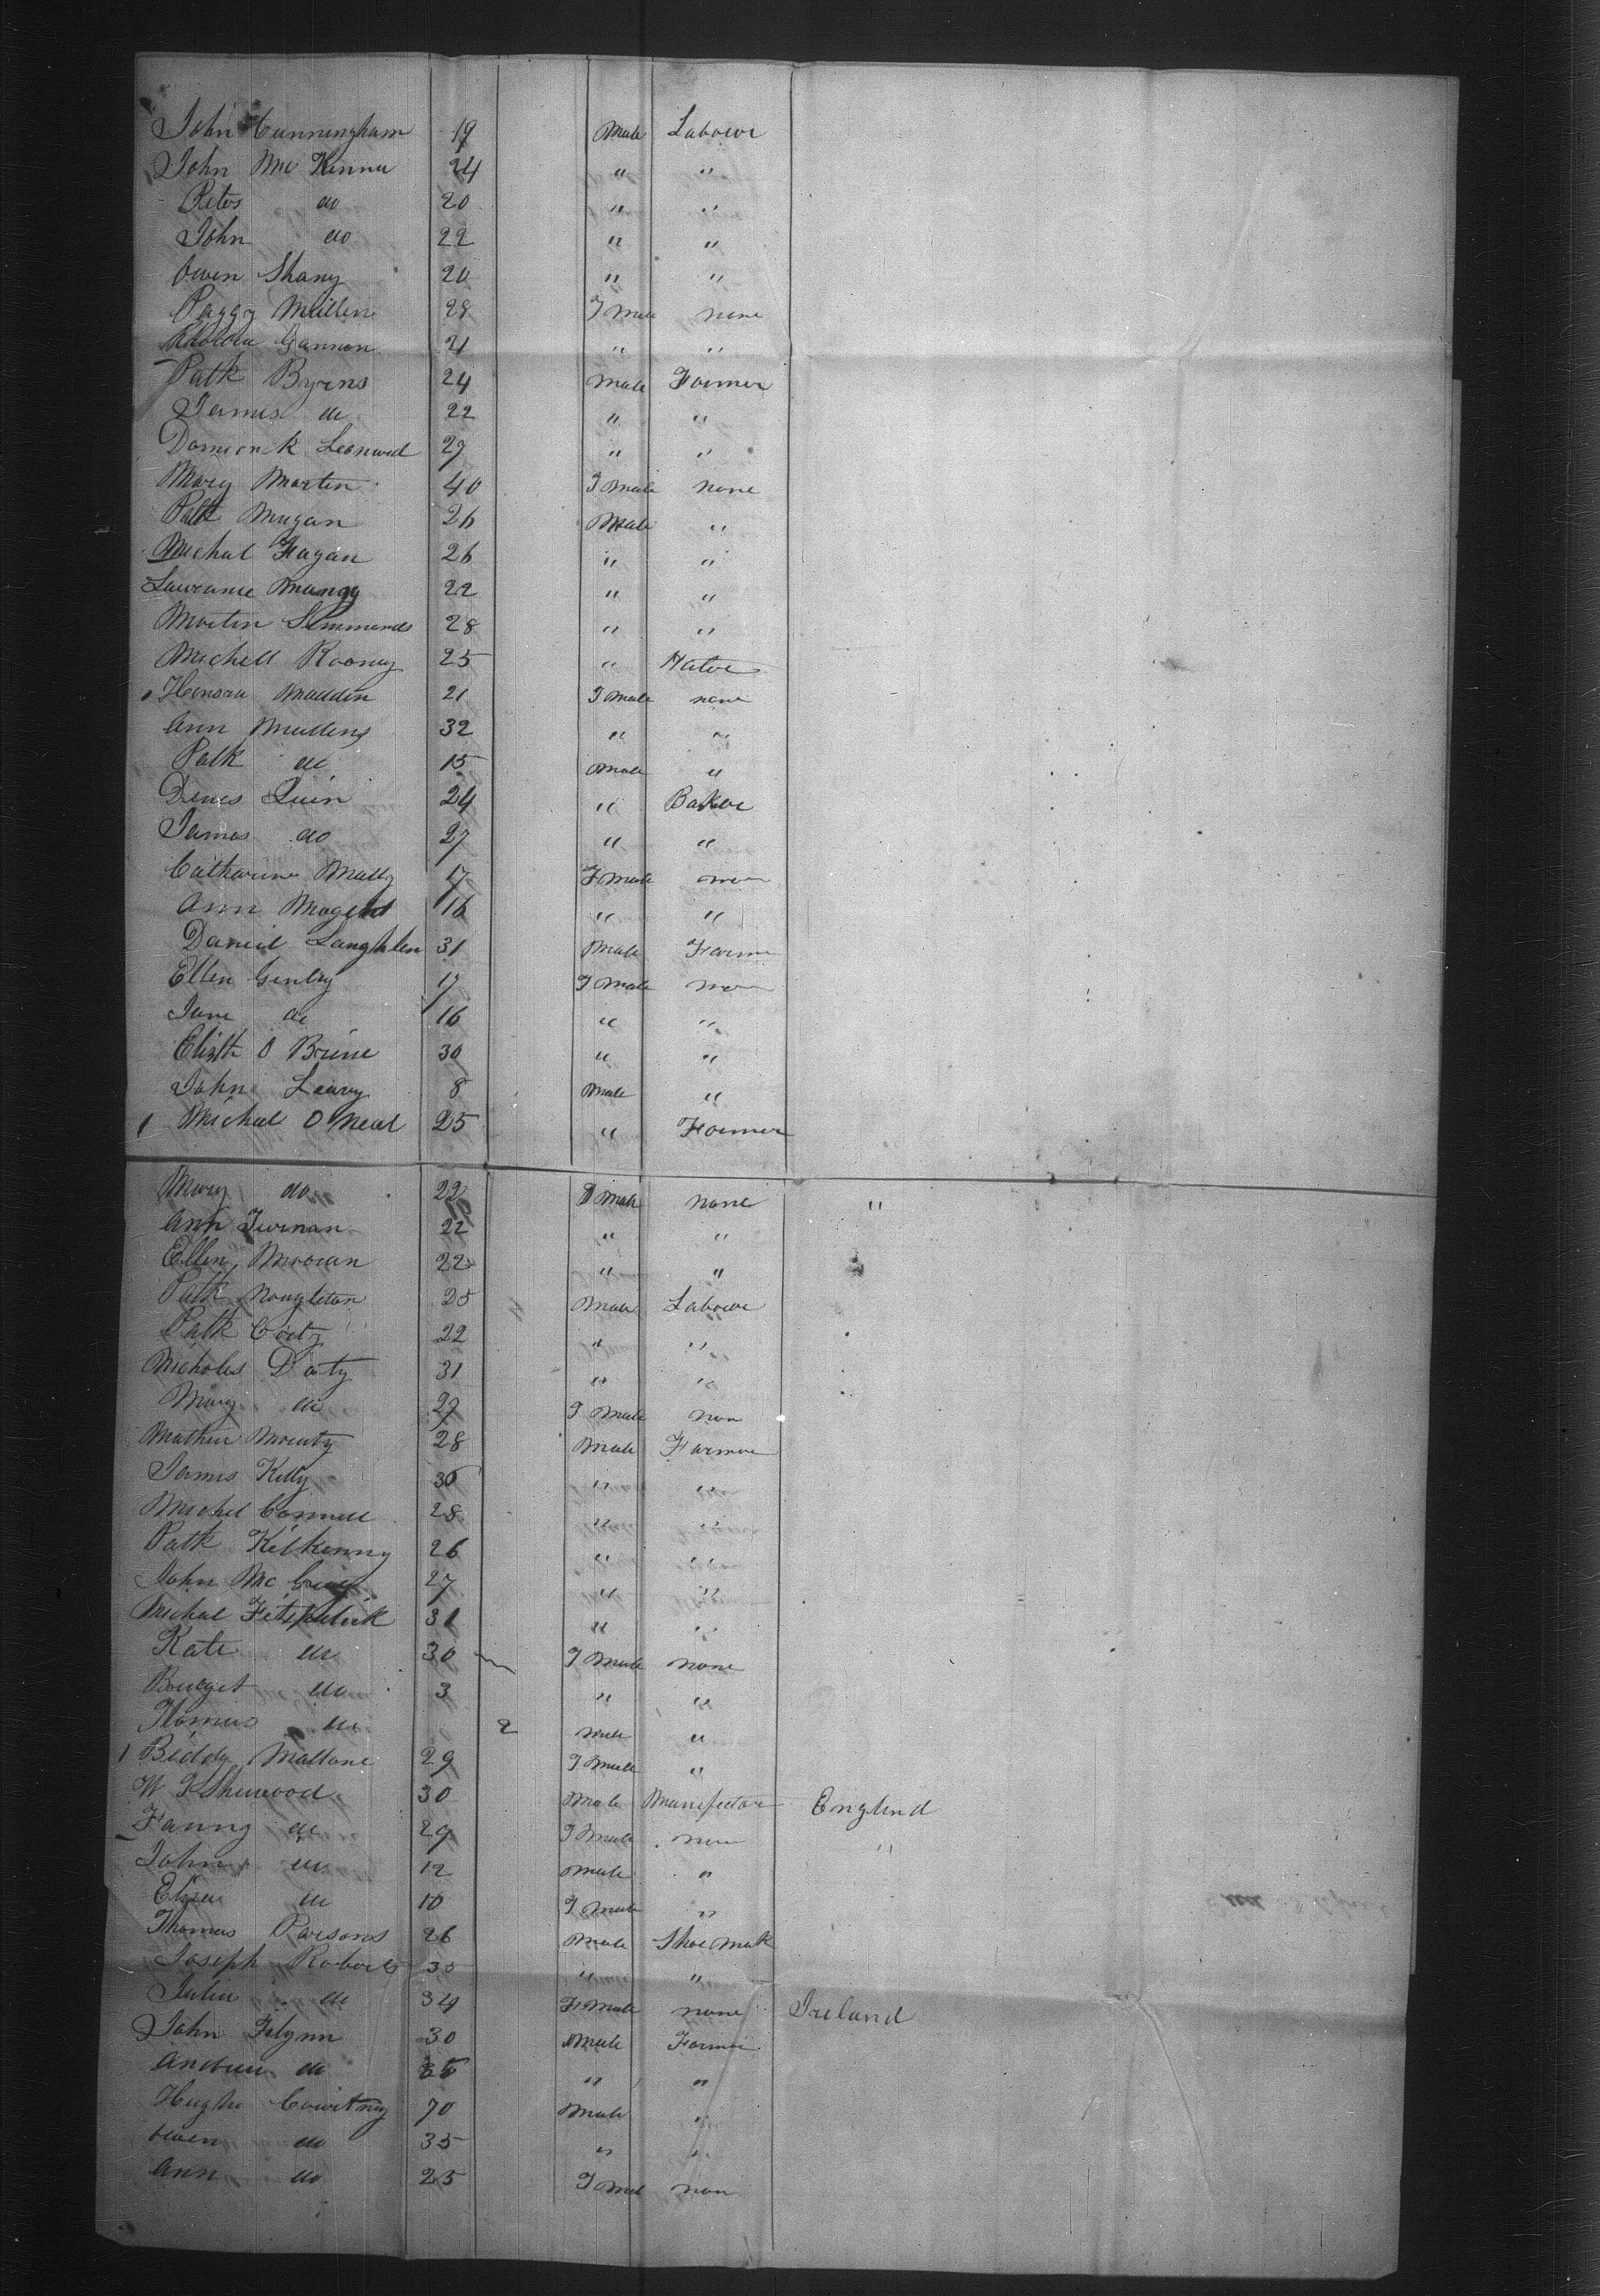 John Cunningham 19 Male Labour
John Mc Kenna 24 " "
Peter do 20 " "
John do 22 " "
Owen Shany 20 " "
Paggy Mullen 28 F Male none
Gannon 21 " "
Patk Byrns 24 Male Farmer
James do 22 " "
Domionk Leonard 27 " "
Mary Martin 40 F Male none
Patk Mugan 26 Male "
Michal Fagan 26 " "
Lawrance 22 " "
Martin Simmonds 28 " "
Michell Rooney 25 " Hator
Honora Madden 21 F Male none
Ann Mullens 32 " "
Patk do 15 Male "
Denes Quin 24 " Baker
James do 27 " "
Catharine Mally 17 F Male non
Ann 16 " "
Daniel Laughlen 31 Male Farme
Ellen Genty 17 F Male non
Jane do 16 " "
Elisth O Brine 30 " "
John Leavy 8 Male "
1 Michal O Neal 25 " Farmer
Mary do 22 F Male none "
Ann Tiernan 22 " "
Ellen Morran 22 " "
Patk Naughton 25 Male Labour
Patk Coity 22 " "
Nicholes Doity 31 " "
Mary do 27 F Male non
Mathew 28 Male Farmer
James Kelly 30 " "
Michel Connell 28 " "
Patk Kilkenny 26 " "
John Mc 27 " "
Michal Fitzpatrick 31 " "
Kate do 30 F Male none
Bridget do 3 " "
Thomas do 2 Male "
1 Biddy Mallone 29 F Male "
W Sherwood 30 Male Manufactor Englend
Fanny do 29 F Male non "
John do 12 Male "
Eliza do 10 F Male "
Thomas Parsons 26 Male Shoe Mak
Joseph Roberts 35 " "
Julia do 34 F Male none Ireland
John Flynn 30 Male Farmer
Andrew do 35 " "
Hugh Cowitney 70 Male "
Owen do 35 " "
Ann do 25 F Mal non